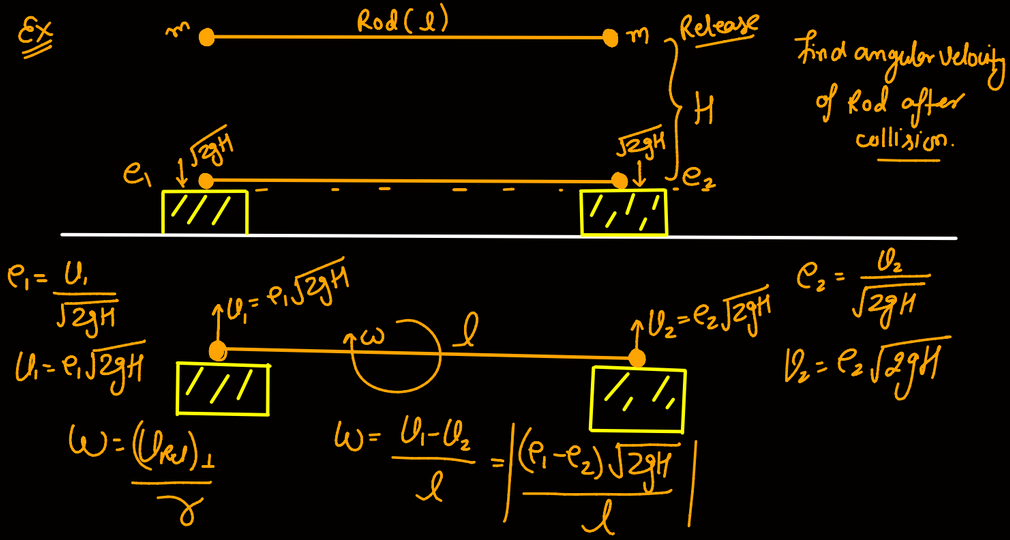 Ex
m Rod(l) m Release
H
Find angular velocity
of Rod after
collision.
e₁ ↓√2gH √2gH↓ e₂
e₁ = v₁/√2gH
v₁ = e₁√2gH
v₁ = e₁√2gH
ω
l
v₂ = e₂√2gH
e₂ = v₂/√2gH
v₂ = e₂√2gH
ω = (vRel)⊥/r
ω = v₁-v₂/l = |(e₁-e₂)√2gH/l|